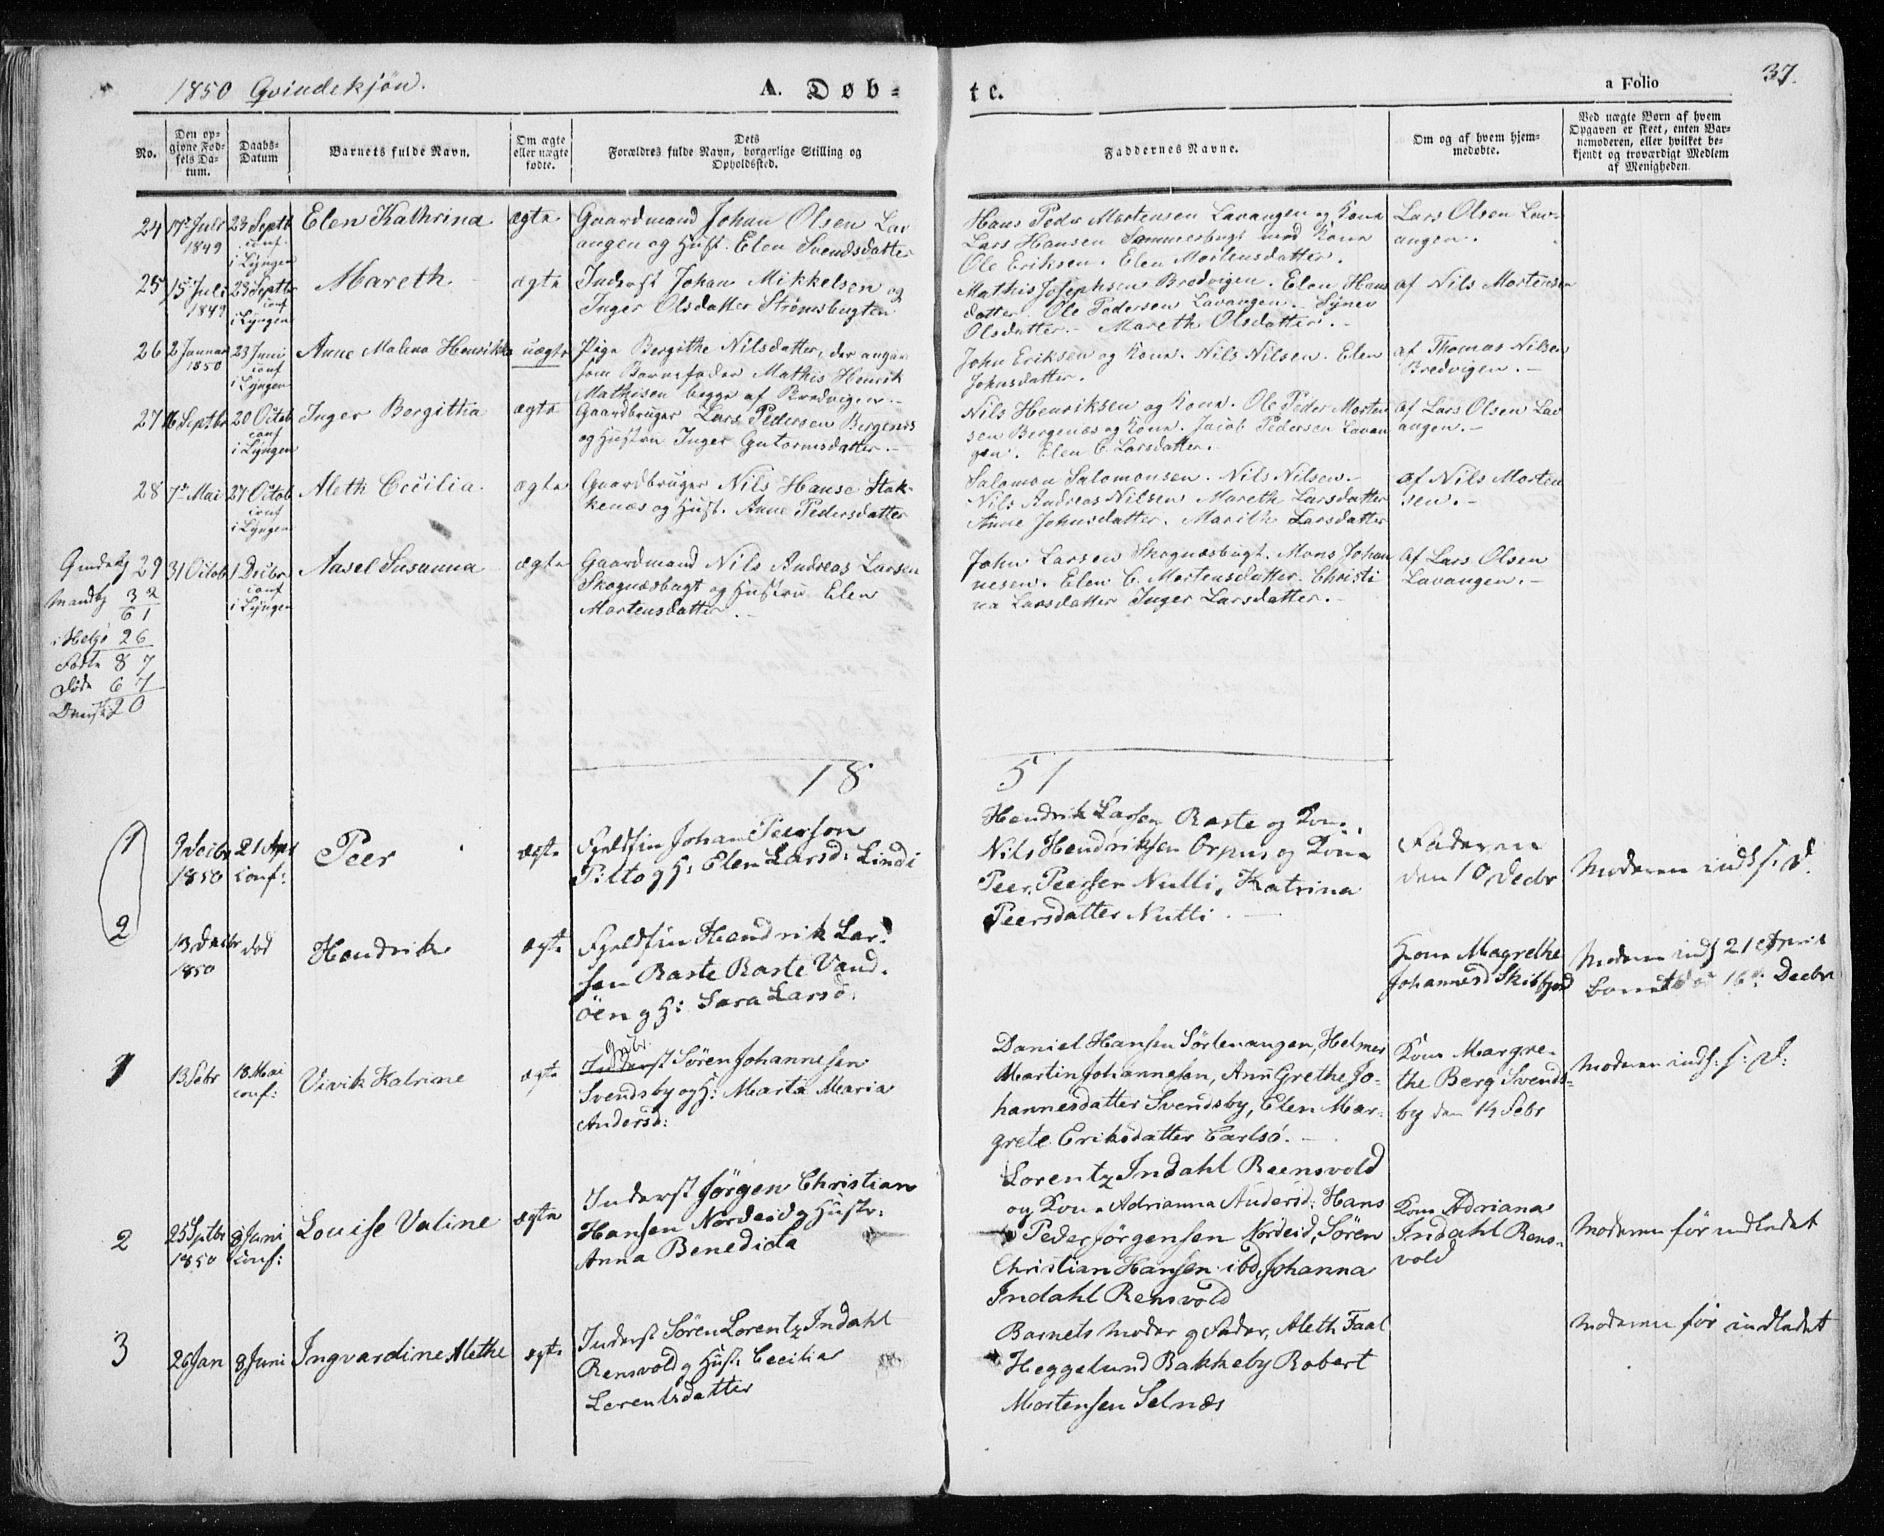 1850 Qvindekjön.
A. Døb-
te.
a Folio
37.
No.
Den op-
givne Fød-
sels Da-
tum.
Daabs-
Datum
Barnets fulde Navn.
Om ægte
eller uægte
fødte.
Dets
Forældres fulde Navn, borgerlige Stilling og
Opholdssted.
Faddernes Navne.
Om og af hvem hjem-
medøbte.
Ved uægte Børn af hvem
Opgaven er skeet, enten Bar-
nemoderen, eller hvilket be-
kjendt og troværdigt Medlem
af Menigheden.
24
17de Juli
1849
23 Septb
conf.
i Lyngen
Elen Kathrina
ægte
Gaardmand Johan Olsen Lav
angen og Hust. Elen Svendsdatter
Hans Peder Mortensen Lavangen og Kone
Lars Hansen Sommerbugt med Kone
Ole Eriksen. Elen Mortensdatter.
Lars Olsen Lav-
angen.
25
15 Juli
1849
23 Septbr
conf
i Lyngen
Mareth
ægte
Inderst Johan Mikkelsen og
Inger Olsdatter Strømsbugten
Mathis Josephsen Bredvigen. Elen Hans
datter. Ole Pedersen Lavangen. Synev
Olsdatter. - Mareth Olsdatter. -
af Nils Mortensen
26
2 Januar
1850
23 Juni
conf
i Lyngen
Anne Malena Henrikka
uægte
Pige Bergithe Nilsdatter, der angiv
som Barnefader Mathis Henrik
Mathisen begge af Bredvigen. -
John Eriksen og Kone. Nils Nilsen. Elen
Johnsdatter.
af Thomas Nilsen
Bredvigen. -
27
16 Septbr
20 Octob
conf
i Lyngen
Inger Bergitha
ægte
Gaardbruger Lars Pedersen Bergenes
og Hustru Inger Gutormsdatter. -
Nils Henriksen og Kone. Ole Peder Morten
sen Bergenæs og Kone. Jacob Pedersen Lavan
gen. Elen C. Larsdatter.
af Lars Olsen Lav
angen. -
28
7de Mai
27 Octob
conf
i Lyngen
Aleth Cecilia
ægte
Gaardbruger Nils Hanse Stak-
kenæs og Hust. Anne Pedersdatter
Salomon Salomonsen. Nils Nilsen.
Nils Andreas Nilsen Mareth Larsdatter
Anne Johnsdatter. Marith Larsdatter
af Nils Morten
sen. -
29
31 Octob
1 Decbr
conf
i Lyngen
Aasel Susanna
ægte
Gaardmand Nils Andreas Larsen
Skognæsbugt og Hustru Elen
Mortensdatter. -
John Larsen Skognæsbugt. Mons Johan
nesen. Elen C. Mortensdatter. Christi
na Larsdatter Inger Larsdatter. -
af Lars Olsen
Lavangen. -
Mandkj 32
61
i Helgö 26
Fødte 87
Døde 67
20
18
51
1
9 Decbr
1850
21 Apr
Conf:
Peer
ægte
Fjeldfin Johan Peersen
Pilto og H: Elen Larsd: Lindi
Hendrik Larsen Baste og Kone,
Nils Hendriksen Orpus og Kone
Peer Peersen Nulli, Katrina
Peersdatter Nutti. -
Faderen
den 10 Decbr
Moderen inds. s. D.
2
13 Decbr
1850
død
Hendrik
ægte
Fjeldfin Hendrik Lar-
sen Baste Baste Vand-
öen og H: Sara Larsd.
Kone Magrethe
Johannesd Skibfjord
Moderen inds 21 April
16de Decbr
1
13 Febr
18 Mai
conf:
Vivik Katrine
ægte
Inderst Sören Johannesen
Svendsby og H: Marta Maria
Andersd:
Daniel Hansen Sörlenangen, Helmer
Martin Johannesen, Ann Grethe Jo-
hannesdatter Svendsby, Elen Mar-
grete Eriksdatter Carlsö. -
Kone Margre-
the Berg Svends-
by den 14 Febr
Moderen inds: s: D:
2
25 Sptbr
1850
8 Juni
Conf:
Louise Valine
ægte
Inderst Jörgen Christian
Hansen Nordeid og Hustr:
Anna Benedicta
Lorentz Indahl Reensvold
og Kone Adrianna Andersd: Hans
Peder Jörgensen Nordeid, Sören
Christian Hansen ibd, Johanna
Indahl Rensvold
Kone Adriana
Indahl Rens-
vold
Moderen för indledet
3
26 Jan
8 Juni
Ingvardine Alethe
ægte
Inderst Sören Lorentz Indahl
Rensvold og Hust: Cecilia
Lorentsdatter
Barnets Moder og Fader, Aleth Faal
Heggelund Bakkeby Robert
Mortensen Selnæs
Moderen för indledet